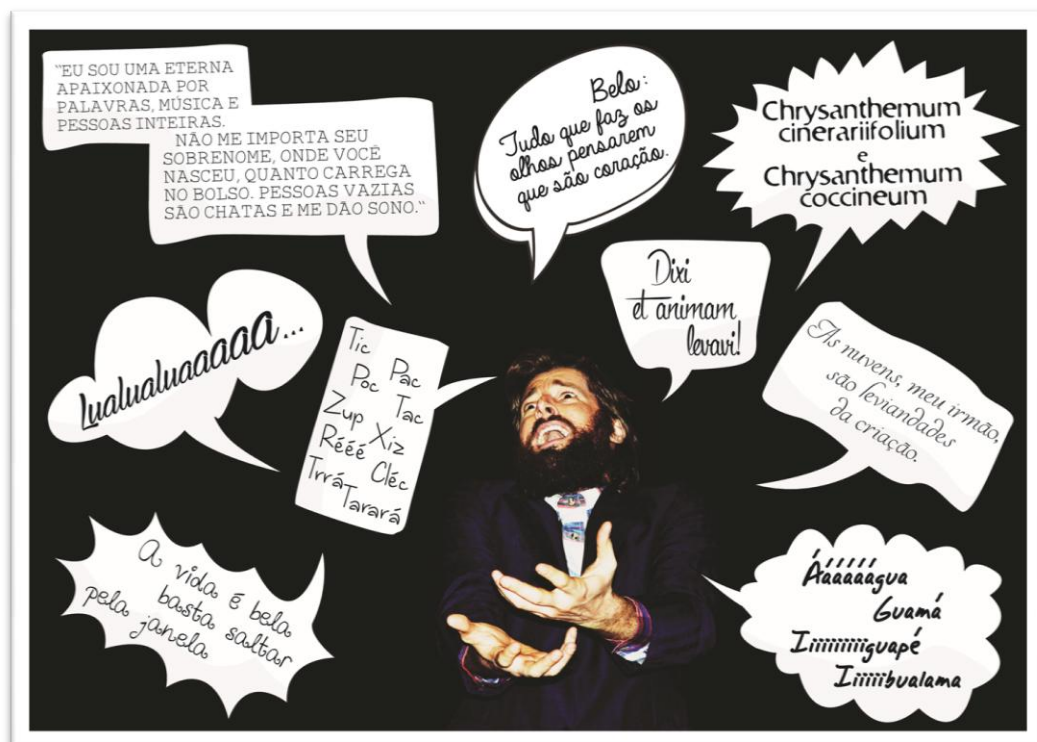 "EU SOU UMA ETERNA
APAIXONADA POR
PALAVRAS, MÚSICA E
PESSOAS INTEIRAS.
NÃO ME IMPORTA SEU
SOBRENOME, ONDE VOCÊ
NASCEU, QUANTO CARREGA
NO BOLSO. PESSOAS VAZIAS
SÃO CHATAS E ME DÃO SONO."
Belo:
Tudo que faz os
olhos pensarem
que são coração.
Chrysanthemum
cinerariifolium
e
Chrysanthemum
coccineum
Dixi
et animam
levavi!
Lualualuaaaaa...
Tic
Pac
Poc
Tac
Zup
Xiz
Réée
Cléc
Trrá
Tarará
As nuvens, meu irmão,
são leviandades
da criação.
A vida é bela
basta saltar
pela janela
Áááááágua
Guamá
Iiiiiiiiiguapé
Iiiiiibualama